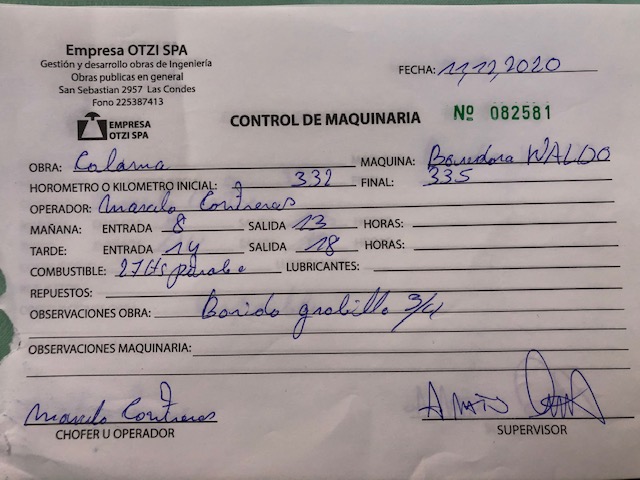 Empresa OTZI SPA
Gestión y desarrollo obras de Ingeniería
Obras publicas en general
San Sebastian 2957 Las Condes
Fono 225387413
FECHA: 11,12,2020
EMPRESA
OTZI SPA
CONTROL DE MAQUINARIA Nº 082581
OBRA: Coloma MAQUINA: Baredora WALDO
HOROMETRO O KILOMETRO INICIAL: 332 FINAL: 335
OPERADOR: Manuelo Contreras
MAÑANA: ENTRADA 8 SALIDA 13 HORAS:
TARDE: ENTRADA 14 SALIDA 18 HORAS:
COMBUSTIBLE: LUBRICANTES:
REPUESTOS:
OBSERVACIONES OBRA: Barrido gravilla 3/4
OBSERVACIONES MAQUINARIA:
Manuelo Contreras
CHOFER U OPERADOR SUPERVISOR